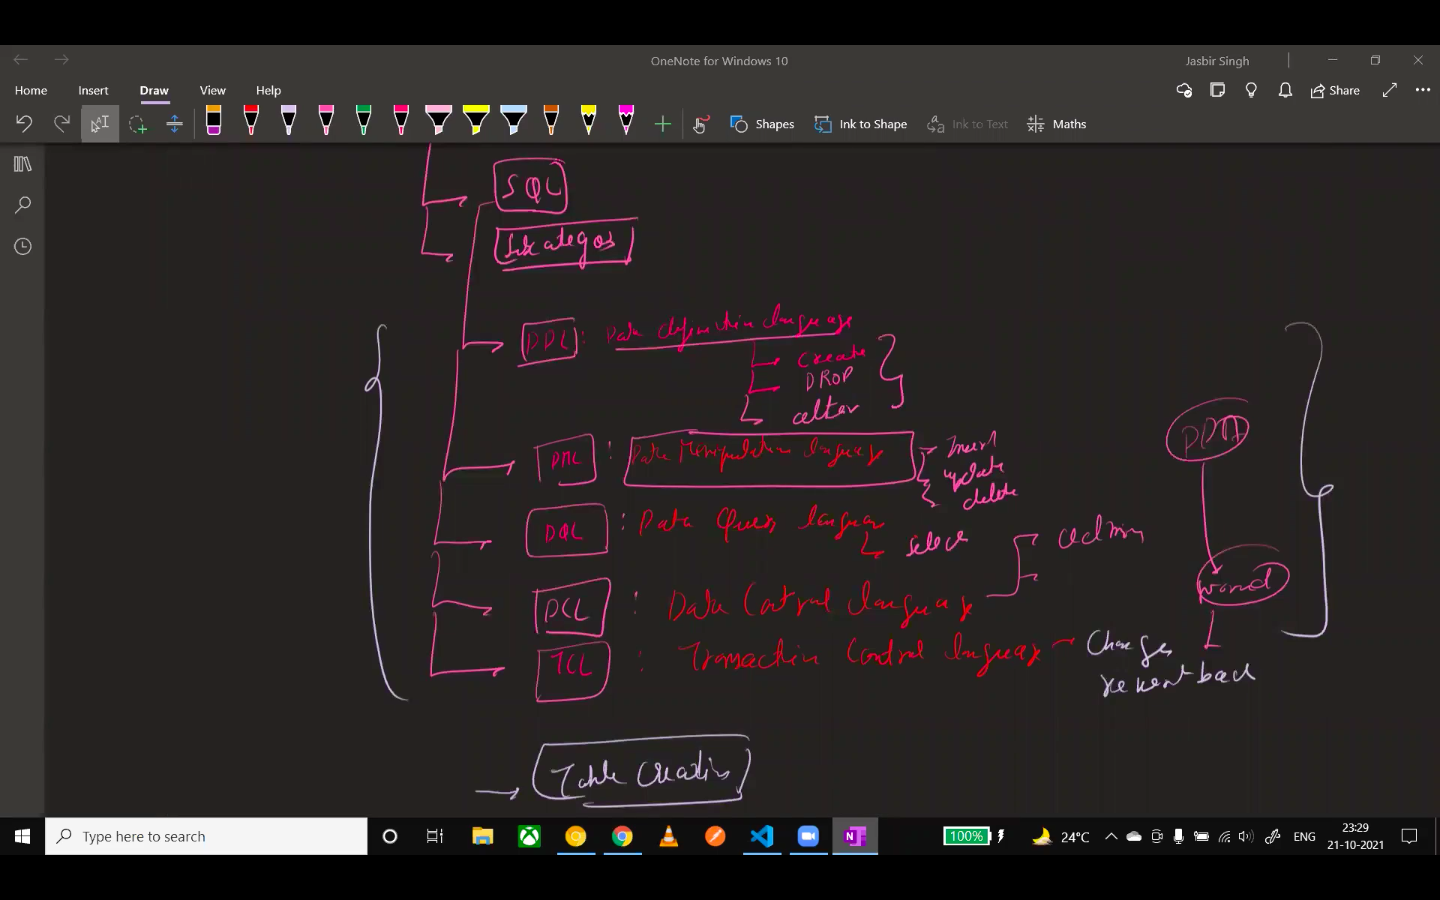 OneNote for Windows 10
Jasbir Singh
Home Insert Draw View Help
Share
Shapes Ink to Shape Ink to Text Maths
SQL
DDL : Data definition language
Create
DROP
alter
DML : Data Manipulation language
Insert
update
delete
DQL : Data Query language
select
DCL : Data Control language
admin
TCL : Transaction Control language
Changes
revert back
word
Table Creation
Type here to search
100%
24°C
ENG
23:29
21-10-2021